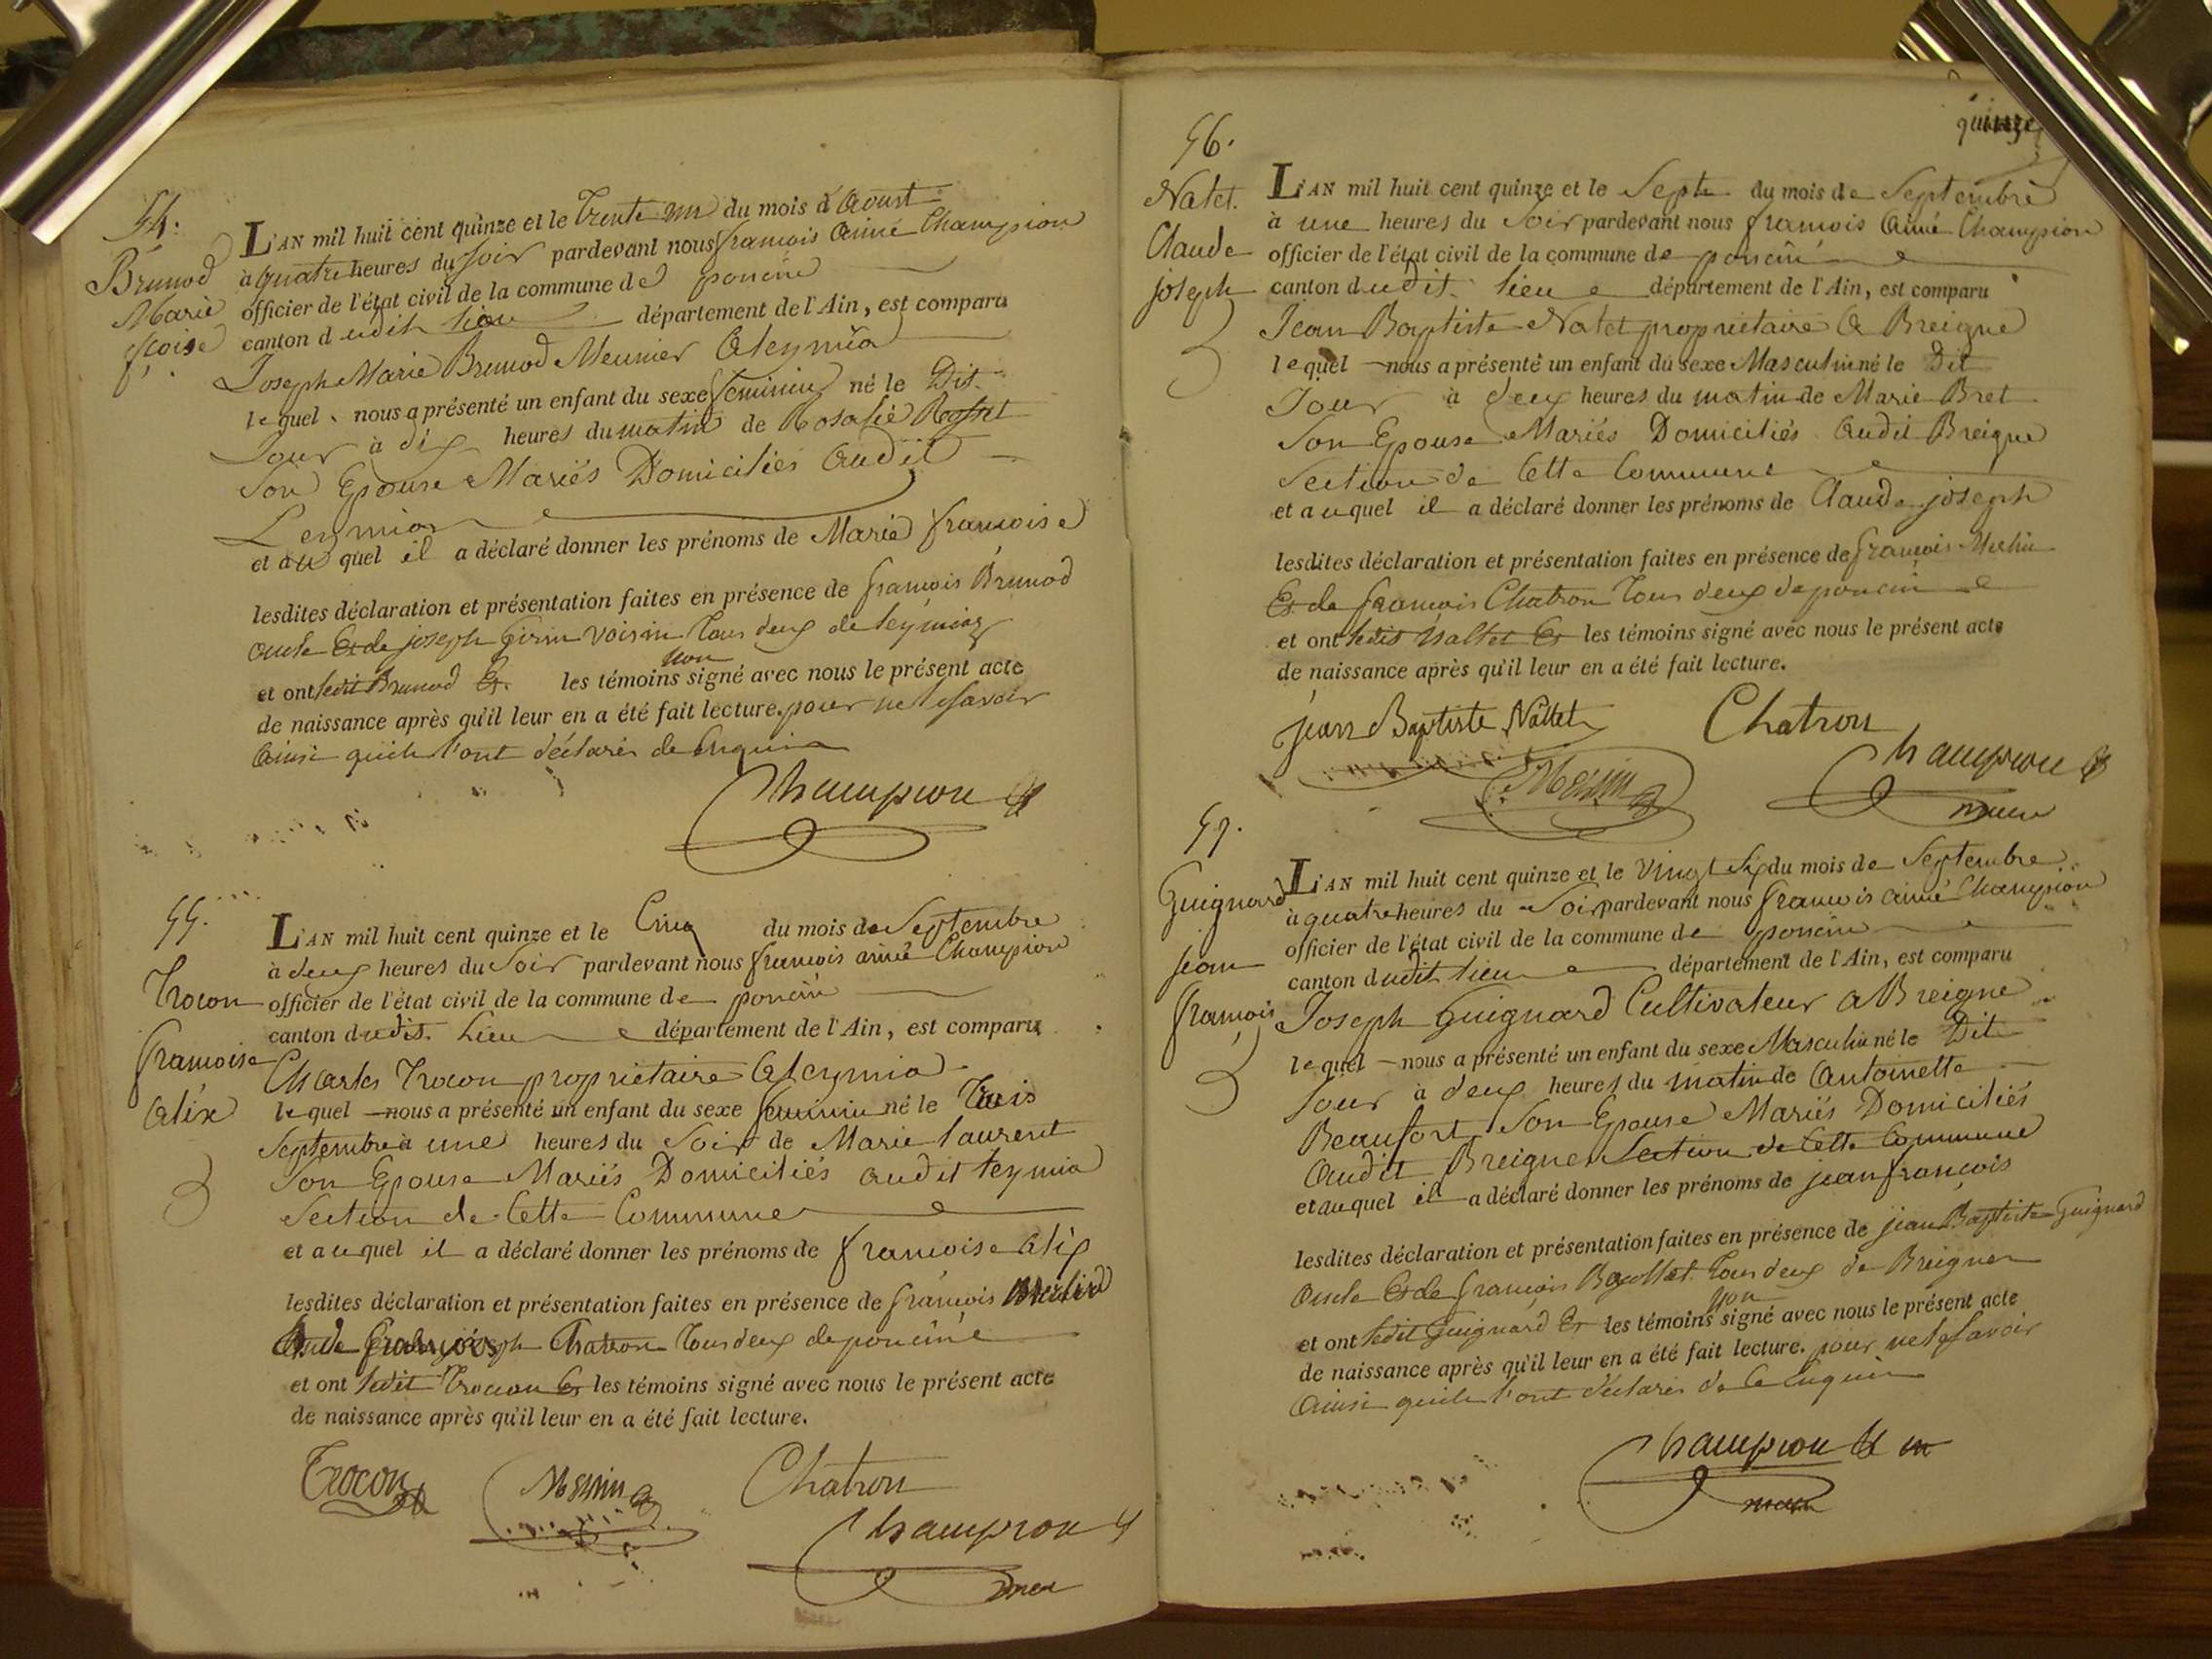 54.
Brunod
Marie
fçoise
L'AN mil huit cent quinze et le trente un du mois d'Aoust
à quatre heures du soir pardevant nous françois Aimé Champion
officier de l'état civil de la commune de poncin
canton dudit lieu département de l'Ain, est comparu
Joseph Marie Brunod Meunier A leymia
lequel nous a présenté un enfant du sexe feminin né le Dit
Jour à dix heures du matin de Rosalie
Son Epouse Mariés Domiciliés Audit
Leymia
et auquel il a déclaré donner les prénoms de Marie françoise
lesdites déclaration et présentation faites en présence de françois Brunod
oncle Et de joseph Girin voisin Tous deux de leymia
et ont ledit Brunod Et les témoins non signé avec nous le présent acte
de naissance après qu'il leur en a été fait lecture. pour ne le savoir
Ainsi quils l'ont déclarés de Enquis
Champion
55.
Trocon
françoise
alix
L'AN mil huit cent quinze et le Cinq du mois de Septembre
à deux heures du Soir pardevant nous françois aimé Champion
officier de l'état civil de la commune de poncin
canton dudit Lieu département de l'Ain, est comparu
Charles Trocon propriétaire A leymia
lequel nous a présenté un enfant du sexe feminin né le Trois
Septembre à une heures du Soir de Marie laurent
Son Epouse Mariés Domiciliés audit leymia
Section de Cette Commune
et auquel il a déclaré donner les prénoms de françoise Alix
lesdites déclaration et présentation faites en présence de françois
Et de françois Chatron Tous deux de poncin
et ont ledit Trocon Et les témoins signé avec nous le présent acte
de naissance après qu'il leur en a été fait lecture.
Trocon
Chatron
Champion
maire
quinze
56.
Natet.
Claude
joseph
L'AN mil huit cent quinze et le Sept du mois de Septembre
à une heures du Soir pardevant nous françois Aimé Champion
officier de l'état civil de la commune de poncin
canton dudit lieu département de l'Ain, est comparu
Jean Baptiste Natet propriétaire A Breigne
lequel nous a présenté un enfant du sexe Masculin né le Dit
Jour à deux heures du matin de Marie Bret
Son Epouse Mariés Domiciliés Audit Breigne
Section de Cette Commune
et auquel il a déclaré donner les prénoms de Claude joseph
lesdites déclaration et présentation faites en présence de françois
Et de françois Chatron Tous deux de poncin
et ont ledit Nattet Et les témoins signé avec nous le présent acte
de naissance après qu'il leur en a été fait lecture.
jean Baptiste Nattet
Chatron
Champion
maire
57.
Guignard
jean
françois
L'AN mil huit cent quinze et le vingt Six du mois de Septembre
à quatre heures du Soir pardevant nous françois aimé Champion
officier de l'état civil de la commune de poncin
canton dudit lieu département de l'Ain, est comparu
Joseph Guignard Cultivateur A Breigne
lequel nous a présenté un enfant du sexe Masculin né le Dit
Jour à deux heures du matin de Antoinette
Beaufort Son Epouse Mariés Domiciliés
Audit Breigne Section de Cette Commune
et auquel il a déclaré donner les prénoms de jean françois
lesdites déclaration et présentation faites en présence de jean Baptiste Guignard
Oncle Et de françois Tous deux de Breigne
et ont ledit Guignard Et les témoins non signé avec nous le présent acte
de naissance après qu'il leur en a été fait lecture. pour ne le savoir
Ainsi quils l'ont déclarés de Ce Enquis
Champion
maire